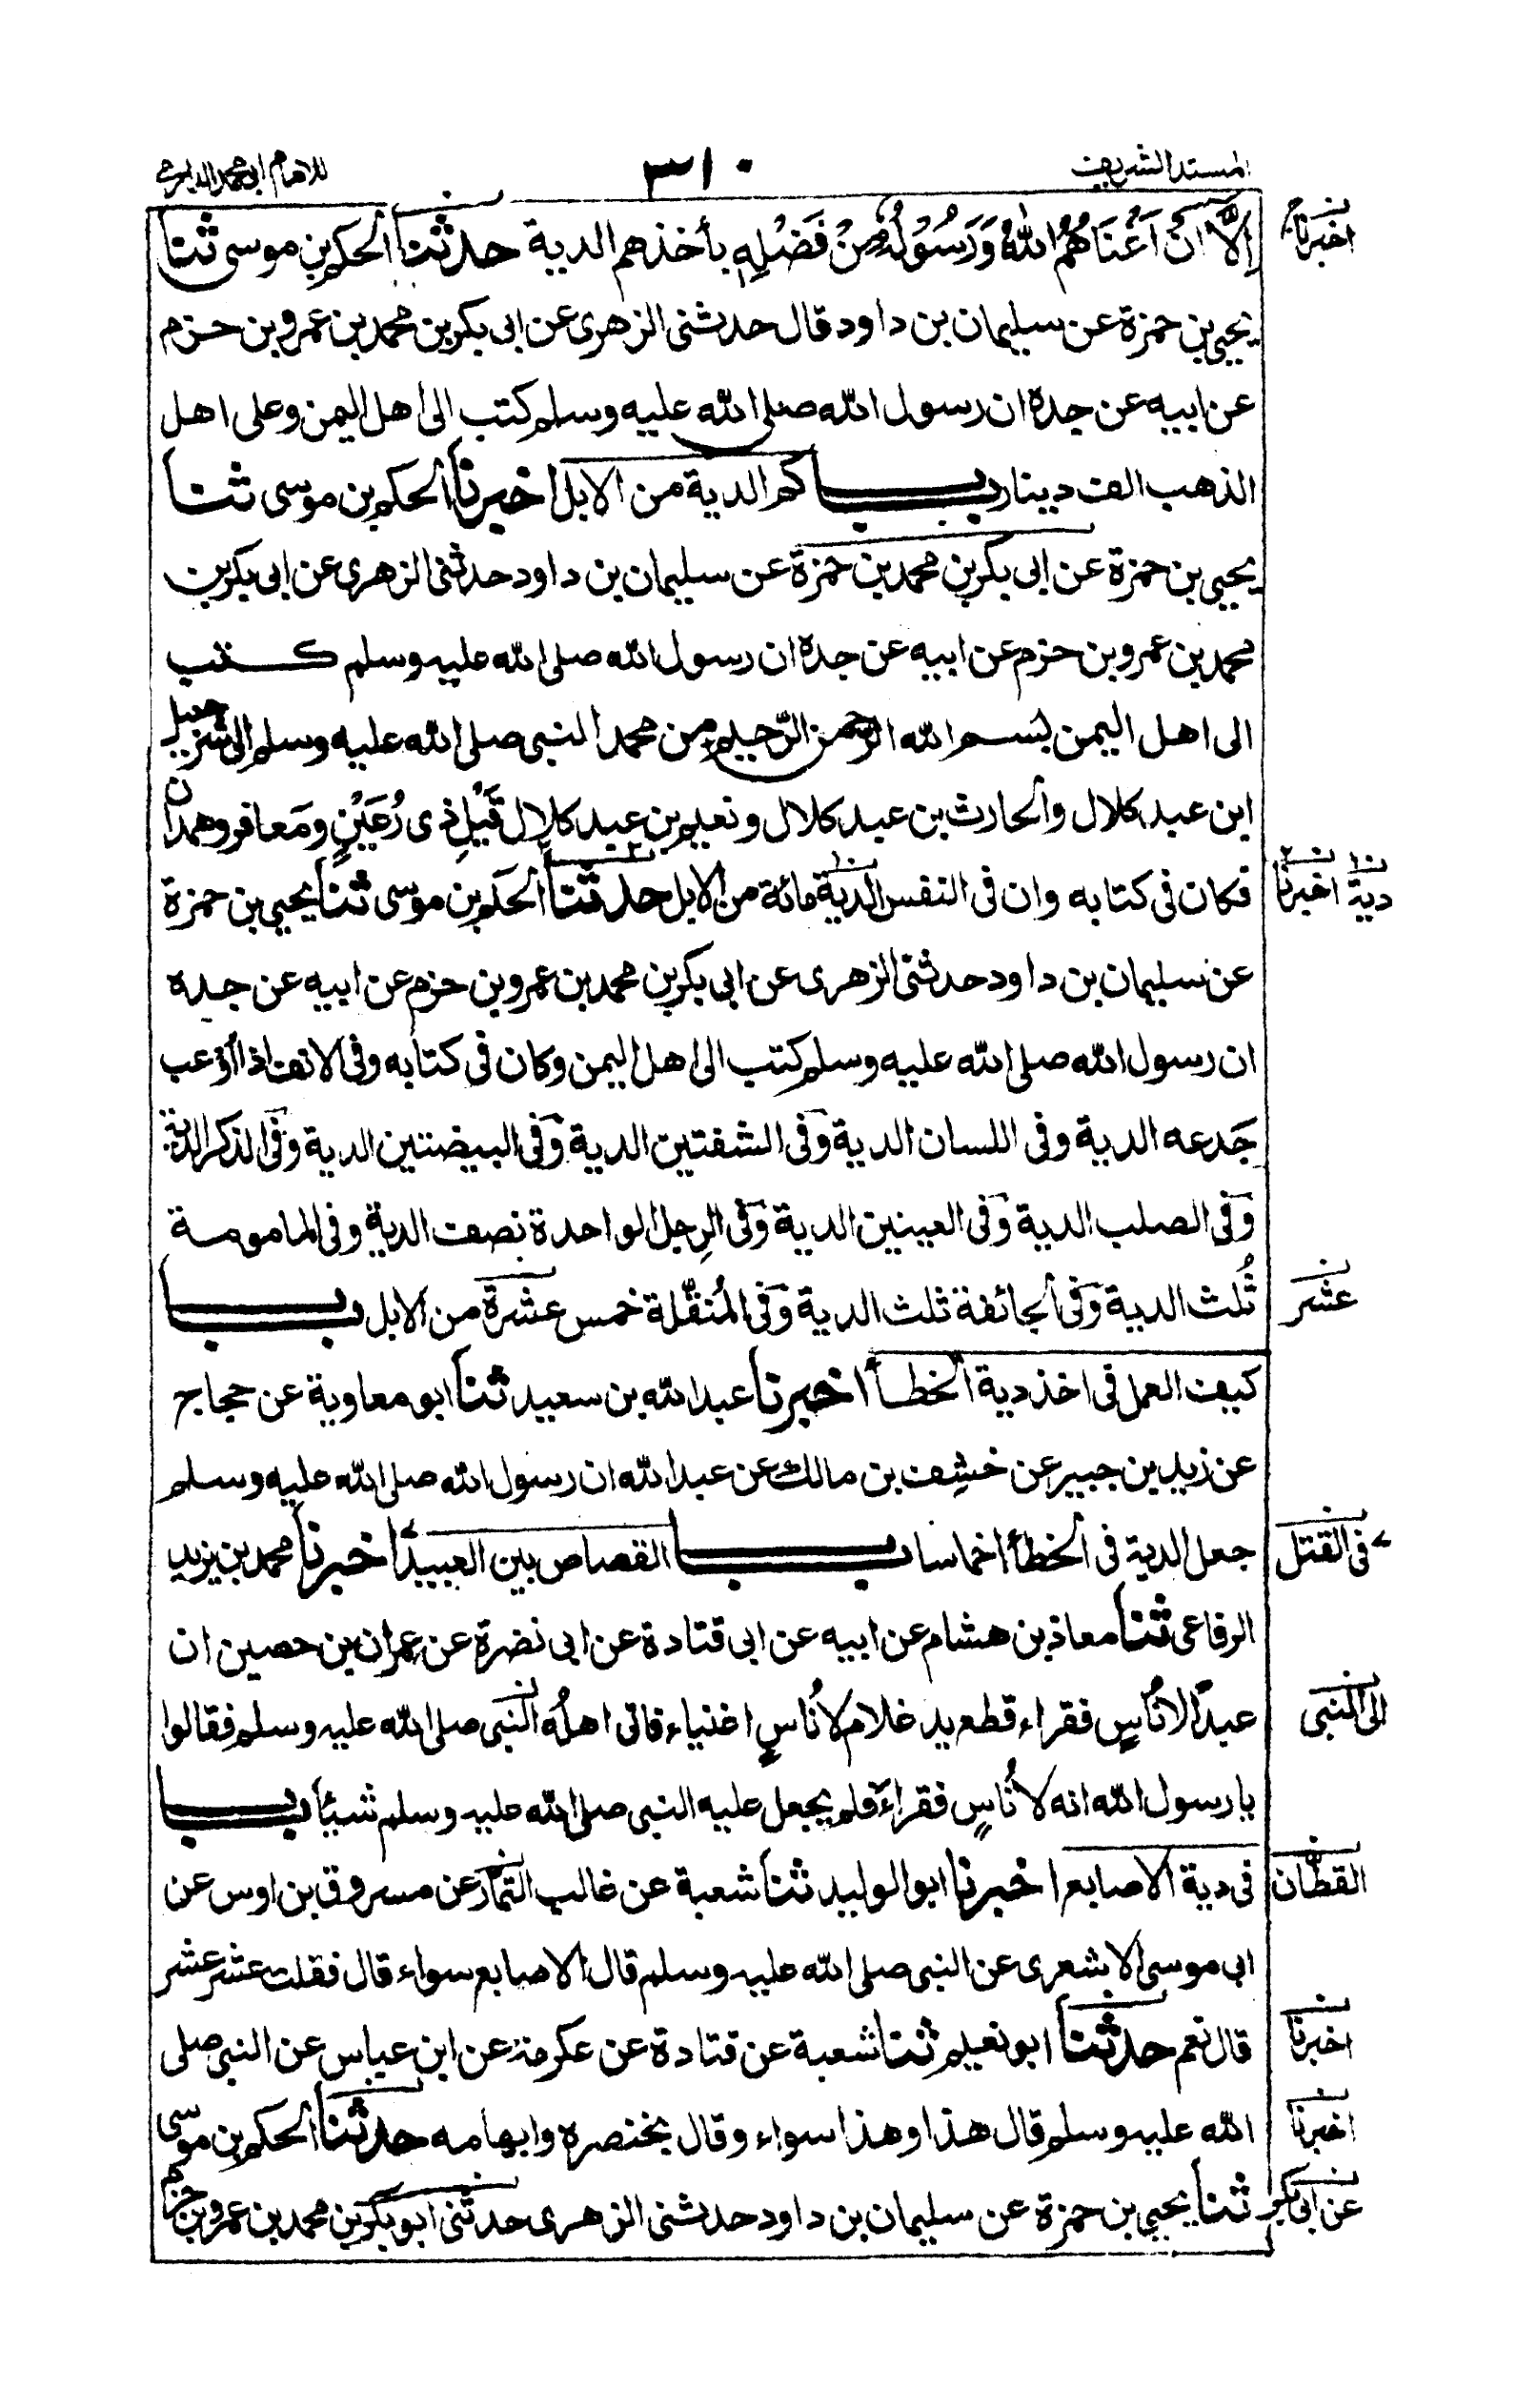 المسند الشريف ٣١٠ للامام ابى محمد الدارمى
اِلَّا اَنْ اَغْنَاهُمُ اللهُ وَرَسُوْلُهٗ مِنْ فَضْلِهٖ بأخذهم الدية حدثنا الحكم بن موسى ثنا
اخبرنا
يحيى بن حمزة عن سليمان بن داود قال حدثنى الزهرى عن ابى بكر بن محمد بن عمرو بن حزم
عن ابيه عن جده ان رسول الله صلى الله عليه وسلم كتب الى اهل اليمن وعلى اهل
الذهب الف دينار باب كم الدية من الابل اخبرنا الحكم بن موسى ثنا
يحيى بن حمزة عن ابى بكر بن محمد بن حمزة عن سليمان بن داود حدثنى الزهرى عن ابى بكر بن
محمد بن عمرو بن حزم عن ابيه عن جده ان رسول الله صلى الله عليه وسلم كتب
الى اهل اليمن بسم الله الرحمن الرّحيم من محمد النبى صلى الله عليه وسلم الى شرحبيل
ابن عبد كلال والحارث بن عبد كلال ونعيم بن عبد كلال قَيْلِ ذى رُعَيْنٍ ومَعافر وهمدان
فكان فى كتابه وان فى النفس الدية مائة من الابل حدثنا الحكم بن موسى ثنا يحيى بن حمزة
دية اخبرنا
عن سليمان بن داود حدثنى الزهرى عن ابى بكر بن محمد بن عمرو بن حزم عن ابيه عن جده
ان رسول الله صلى الله عليه وسلم كتب الى اهل اليمن وكان فى كتابه وفى الانف اذا أوعب
جَدعه الدية وفى اللسان الدية وفى الشفتين الدية وفى البيضتين الدية وفى الذكر الدية
وفى الصلب الدية وفى العينين الدية وفى الرِجل الواحدة نصف الدية وفى المامومة
ثُلث الدية وفى الجائفة ثلث الدية وفى المُنقّلة خمس عشرة من الابل باب
عشر
كيف العمل فى اخذ دية الخطأ اخبرنا عبد الله بن سعيد ثنا ابو معاوية عن حجاج
عن زيد بن جبير عن خشِف بن مالك عن عبد الله ان رسول الله صلى الله عليه وسلم
جعل الدية فى الخطأ اخماسا باب القصاص بين العبيد اخبرنا محمد بن يزيد
فى القتل
الرفاعى ثنا معاذ بن هشام عن ابيه عن ابى قتادة عن ابى نضرة عن عمران بن حصين ان
عبدًا لاُناسٍ فقراء قطع يد غلام لاُناسٍ اغنياء فاتى اهلُه النبى صلى الله عليه وسلم فقالوا
الى النبى
يا رسول الله انه لاُناسٍ فقراء فلم يجعل عليه النبى صلى الله عليه وسلم شيئا باب
فى دية الاصابع اخبرنا ابو الوليد ثنا شعبة عن غالب التمّار عن مسروق بن اوس عن
القطّان
ابى موسى الاشعرى عن النبى صلى الله عليه وسلم قال الاصابع سواء قال فقلت عشر عشر
قال نعم حدثنا ابو نعيم ثنا شعبة عن قتادة عن عكرمة عن ابن عباس عن النبى صلى
اخبرنا
الله عليه وسلم قال هذا وهذا سواء وقال بخنصره وابهامه حدثنا الحكم بن موسى
اخبرنا
ثنا يحيى بن حمزة عن سليمان بن داود حدثنى الزهرى حدثنى ابو بكر بن محمد بن عمرو بن حزم
عن ابى بكر